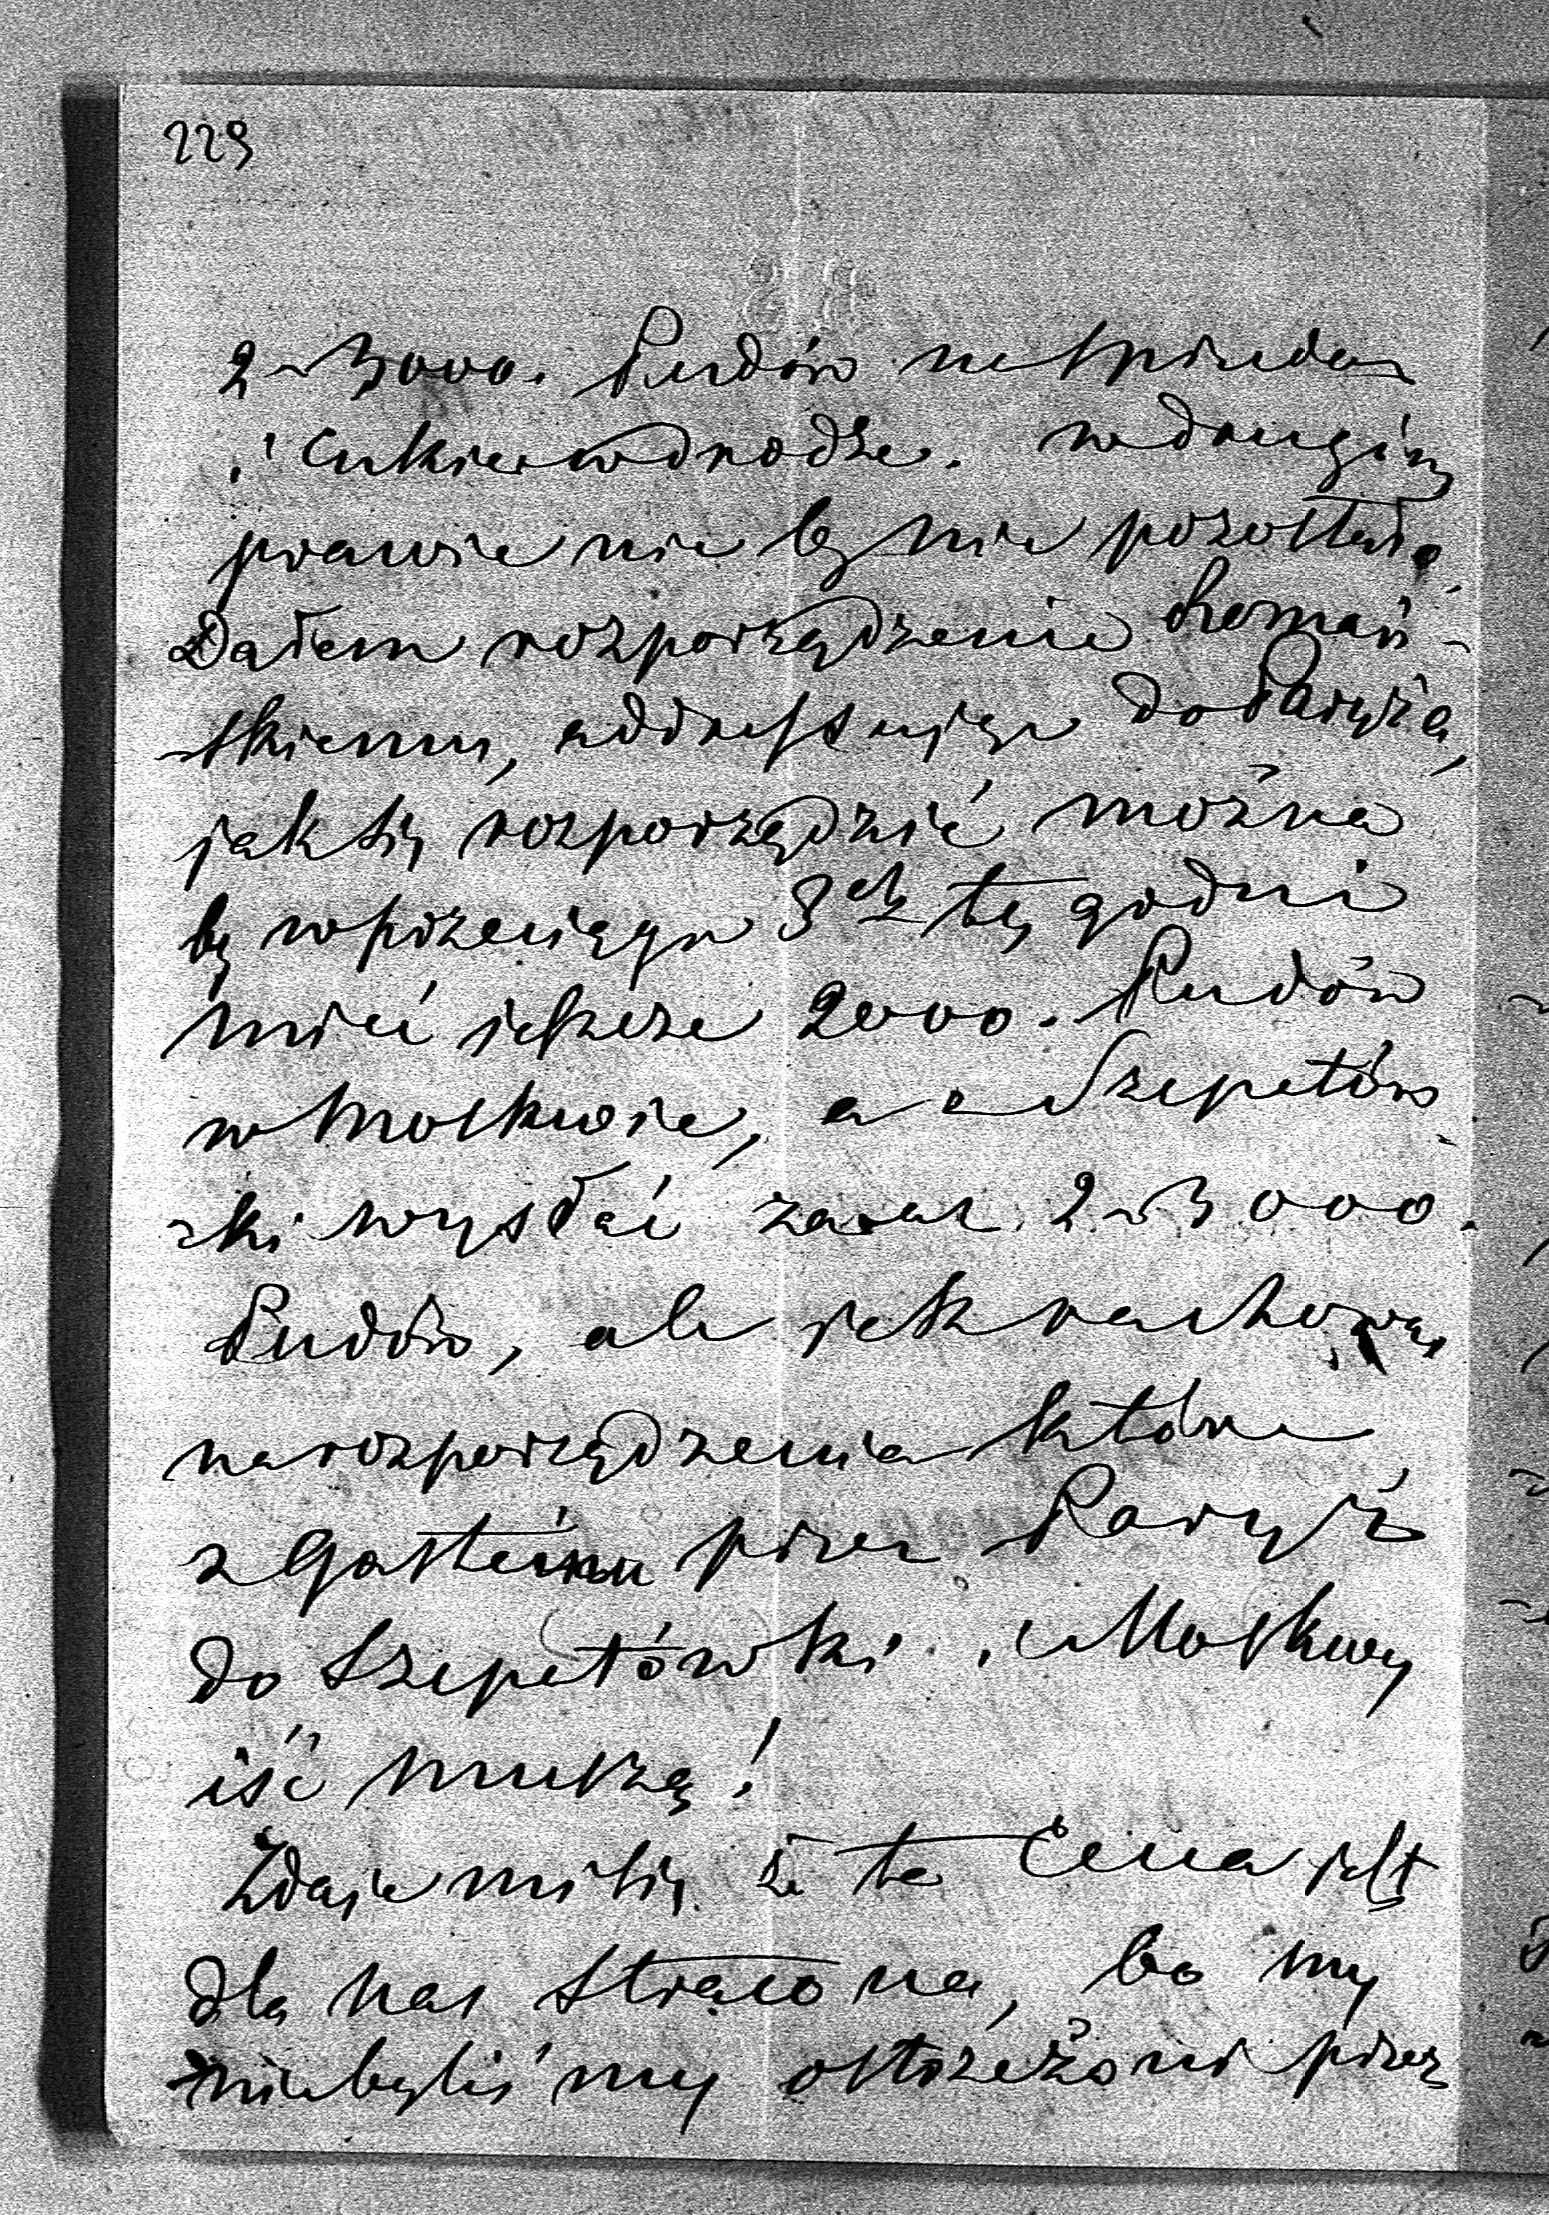 229
2 ~ 3000. Pudów na sprzedaż
i cukier w drodze. w drugim
prawie nic by nie pozostało.
Dałem rozporządzenie Romań-
-skiemu, addressując do Paryża,
jak się rozporządzić można
by w przeciągu 3ch tygodni
mieć jeszcze 2000. Pudów
w Moskwie, a z Szepetów-
-ki wysłać zaraz 2 ~ 3000.
Pudów, ale jak rachować
na rozporządzenia które
z Gasteinu przez Paryż
do Szepetówki i Moskwy
iść muszą!
Zdaje mi się że ta Cena jest
dla nas stracona, bo my
niebyliśmy ostrzeżoni przez